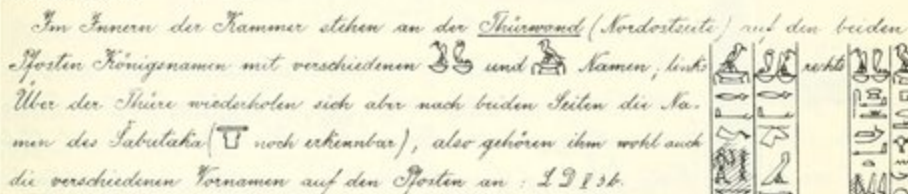 Im Innern der Kammer stehen an der Thürwand (Nordostseite) auf den beiden
Pfosten Königsnamen mit verschiedenen 𓅒 und 𓅉 Namen, links rechts
Über der Thüre wiederholen sich aber nach beiden Seiten die Na-
men des Sabataka ( noch erkennbar), also gehören ihm wohl auch
die verschiedenen Vornamen auf den Pfosten an : L D V 3b.